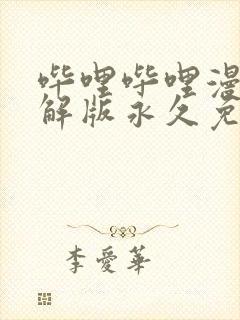 哔哩哔哩漫
解版永久免
李爱華